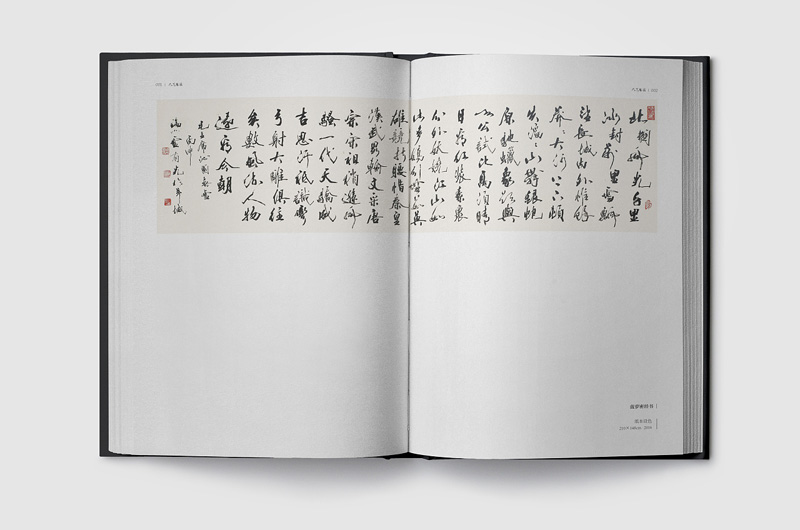 北國風光千里
冰封萬里雪飄
望長城內外惟餘
莽々大河上下頓
失滔々山舞銀蛇
原馳蠟象欲與
天公試比高須晴
日看紅裝素裹
分外妖嬈江山如
此多嬌引無數英
雄競折腰惜秦皇
漢武略輸文采唐
宗宋祖稍遜風
騷一代天驕成
吉思汗祗識彎
弓射大雕俱往
矣數風流人物
還看今朝
毛主席沁園春雪
丙申